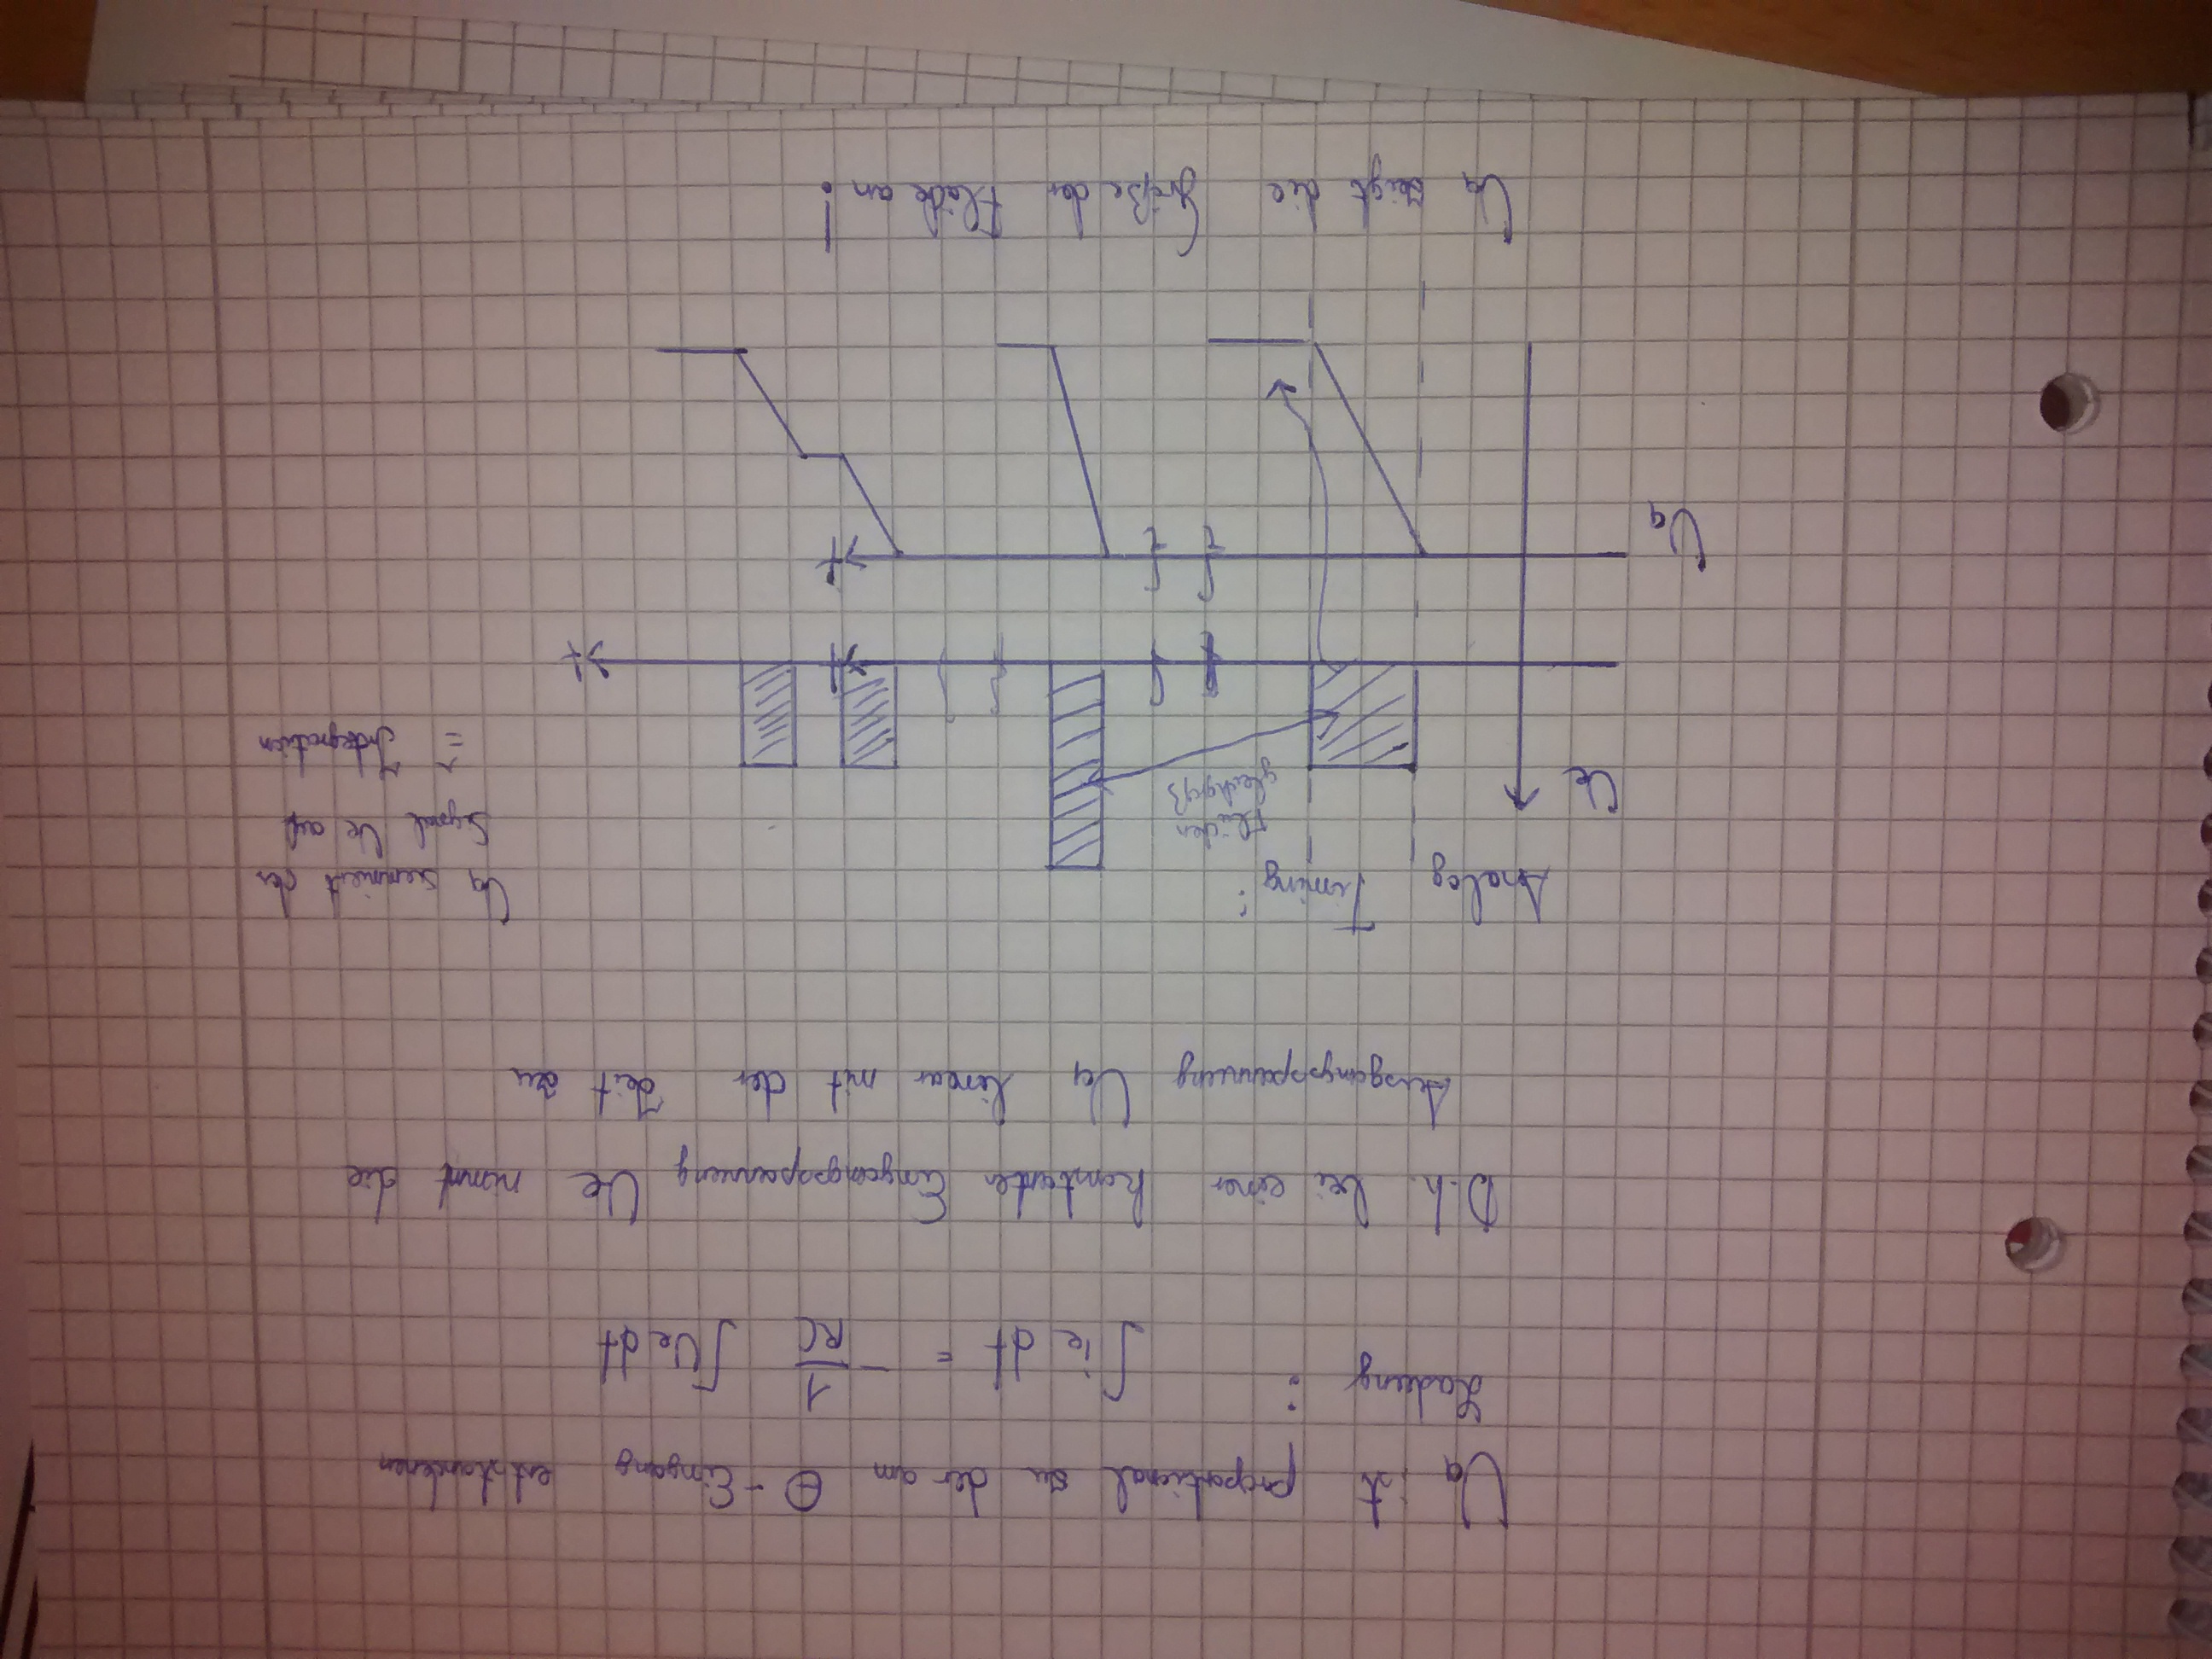 Ua ist proportional zu der am ⊖-Eingang entstandenen
Ladung : ∫ie dt = -1/RC ∫Ue dt
D.h. bei einer konstanten Eingangsspannung Ue nimmt die
Ausgangsspannung Ua linear mit der Zeit zu
Analog Timing :
Ue
Flächen
gleichgroß
t
t
Ua summiert das
Signal Ue auf
= Integration
Ua
t
Ua zeigt die Größe der Fläche an!